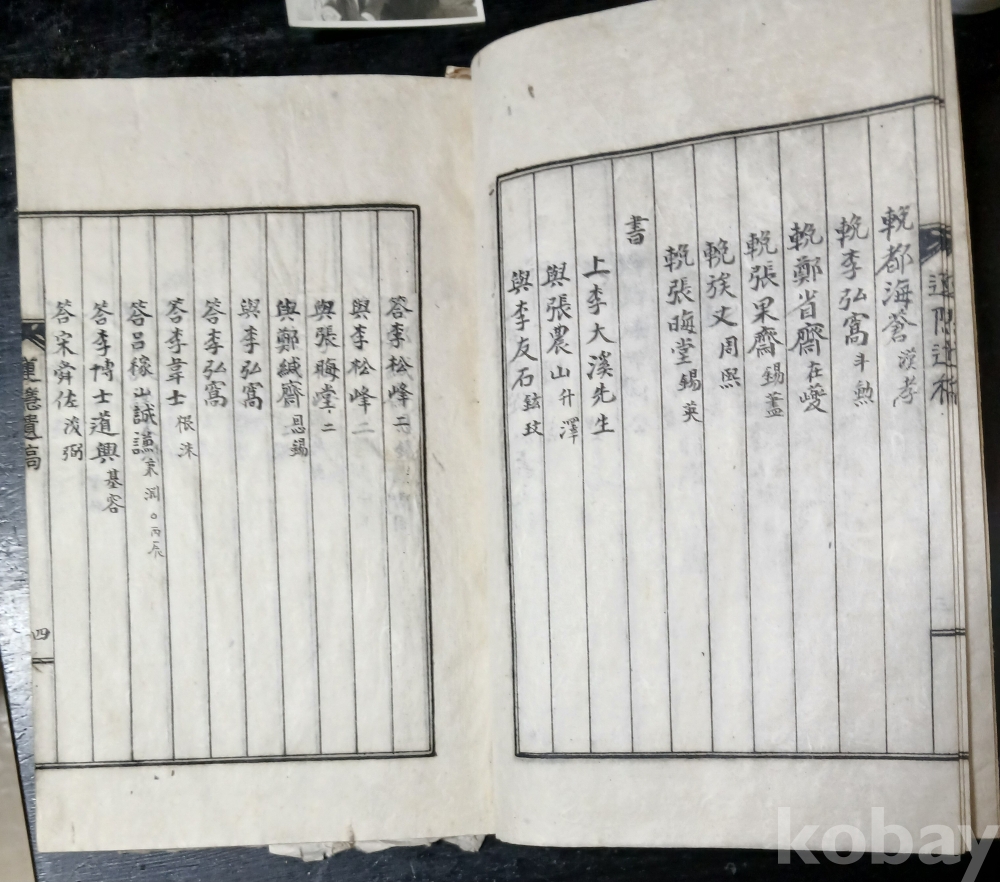 輓都海蒼 漢孝
輓李弘窩 斗勲
輓鄭省齋 在夔
輓張果齋 錫藎
輓族丈 周熙
輓張晦堂 錫英
書
上李大溪先生
與張農山 升澤
與李友石 鉉玟
答李松峰 二
與李松峰 二
與張晦堂 二
與鄭緘齋 恩錫
與李弘窩
答李弘窩
答李韋士 根洙
答呂稼山誠謙 東洞○丙辰
答李博士道興 基容
答宋舜佐 浚弼
遺稿
四
kobay